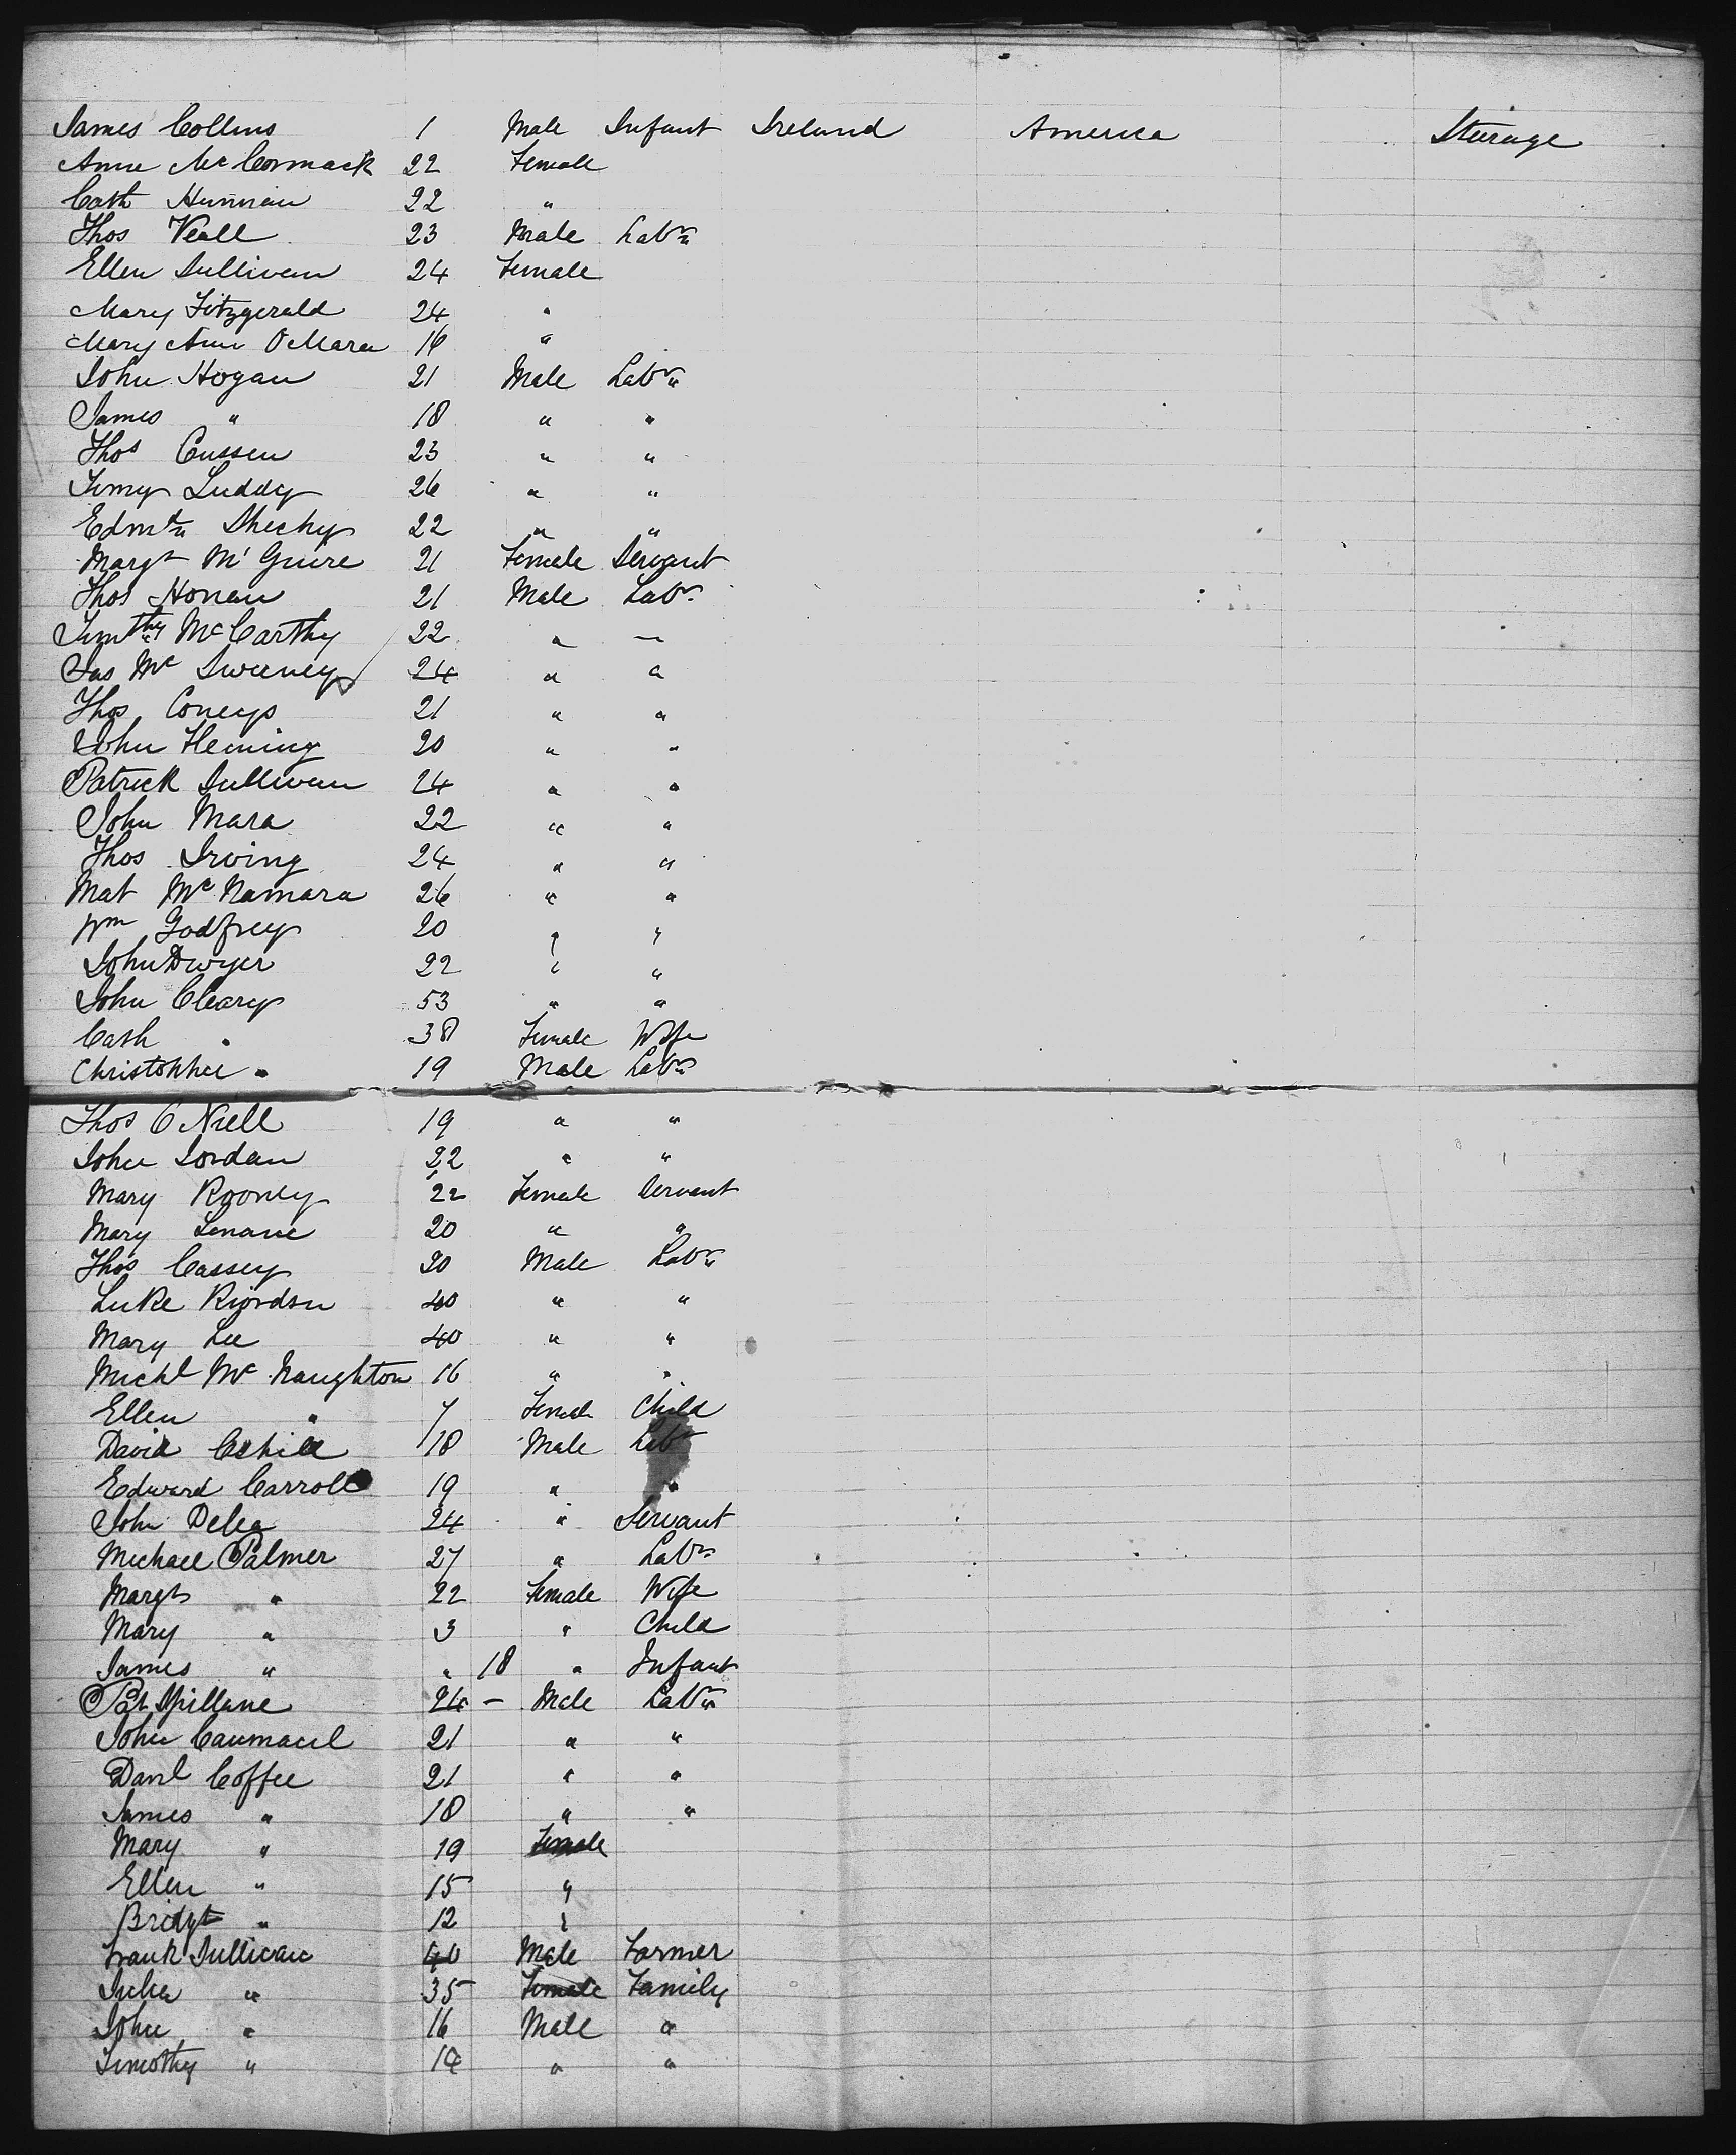 James Collins 1 Male Infant Ireland America Steerage
Anne McCormack 22 Female
Cath 22 "
Thos Veall 23 Male Labr
Ellen Sullivan 24 Female
Mary Fitzgerald 24 "
Mary Ann O Mara 16 "
John Hogan 21 Male Labr
James " 18 " "
Thos Cussen 23 " "
Timy Luddy 26 " "
Edmd Shechy 22 " "
Margt McGuire 21 Female Servant
Thos Honan 21 Male Labr
Timthy McCarthy 22 " —
Jas Mc Sweeney 24 " "
Thos Coneys 21 " "
John Fleming 20 " "
Patrick Sullivan 24 " "
John Mara 22 " "
Thos Irving 24 " "
Mat McNamara 26 " "
Wm Godfrey 20 " "
John Dwyer 22 " "
John Cleary 53 " "
Cath " 38 Female Wife
Christopher " 19 Male Labr
Thos O Niell 19 " "
John Jordan 22 " "
Mary Rooney 22 Female Servant
Mary Lenane 20 " "
Thos Cassey 20 Male Labr
Luke Riordon 40 " "
Mary Lee 40 " "
Michl McNaughton 16 " "
Ellen " 7 Female Child
David Cahill 18 Male Labr
Edward Carroll 19 " "
John Delea 24 " Servant
Michael Palmer 27 " Labr
Margt " 22 Female Wife
Mary " 3 " Child
James " " 18 " Infant
Pat Spillane 24 — Male Labr
John 21 " "
Danl Coffee 21 " "
James " 18 " "
Mary " 19 Female
Ellen " 15 "
Bridgt " 12 "
Frank Sullivan 40 Male Farmer
Julia " 35 Female Family
John " 16 Male "
Timothy " 14 " "